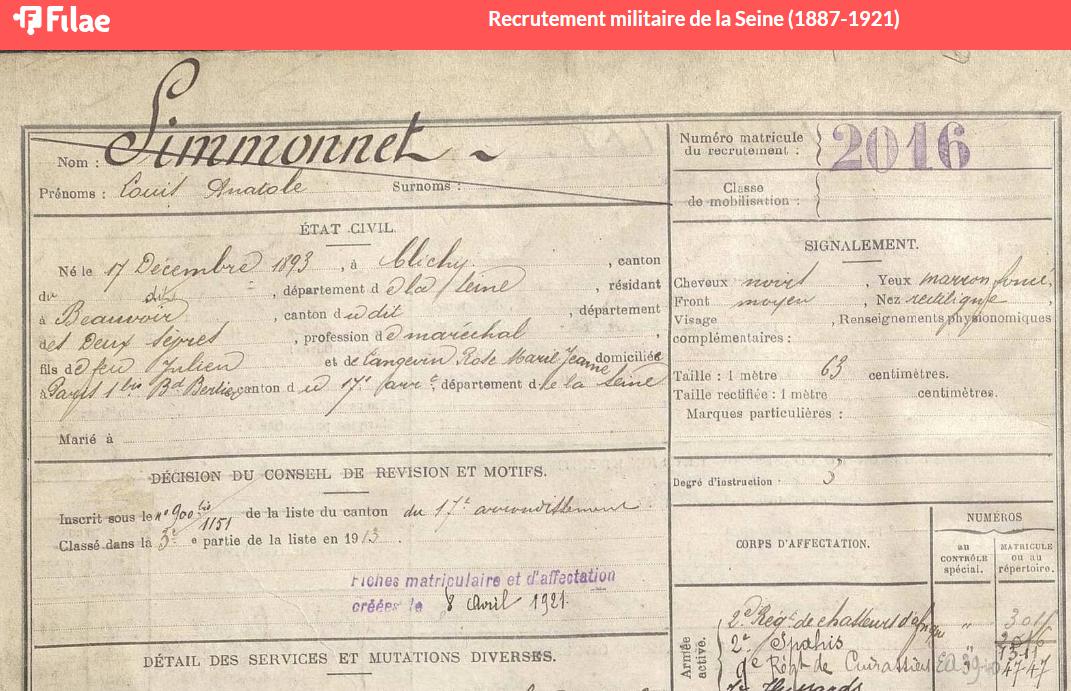 Filae
Recrutement militaire de la Seine (1887-1921)
Nom : Simmonnet
Prénoms : Louis Anatole Surnoms :
Numéro matricule du recrutement : 2016
Classe de mobilisation :
ÉTAT CIVIL.
Né le 17 Décembre 1893, à Clichy, canton
du dit, département de la Seine, résidant
à Beauvoir, canton du dit, département
des Deux Sèvres, profession de maréchal,
fils de feu Julien et de Langevin Rose Marie Jeanne domiciliée
à Paris 1 bis Bd Berthier canton du 17e arr, département de la Seine
Marié à
SIGNALEMENT.
Cheveux noirs, Yeux marron foncé,
Front moyen, Nez rectiligne,
Visage , Renseignements physionomiques
complémentaires :
Taille : 1 mètre 63 centimètres.
Taille rectifiée : 1 mètre centimètres.
Marques particulières :
Degré d'instruction : 3
DÉCISION DU CONSEIL DE REVISION ET MOTIFS.
Inscrit sous le n° 900 bis/1151 de la liste du canton du 17e arrondissement.
Classé dans la 3e e partie de la liste en 1913.
Fiches matriculaire et d'affectation
créées le 8 Avril 1921
DÉTAIL DES SERVICES ET MUTATIONS DIVERSES.
CORPS D'AFFECTATION.
NUMÉROS
au CONTRÔLE spécial.
MATRICULE ou au répertoire.
Armée active.
2e Régt de chasseurs d'afrique "
2e Spahis "
9e Régt de Cuirassiers